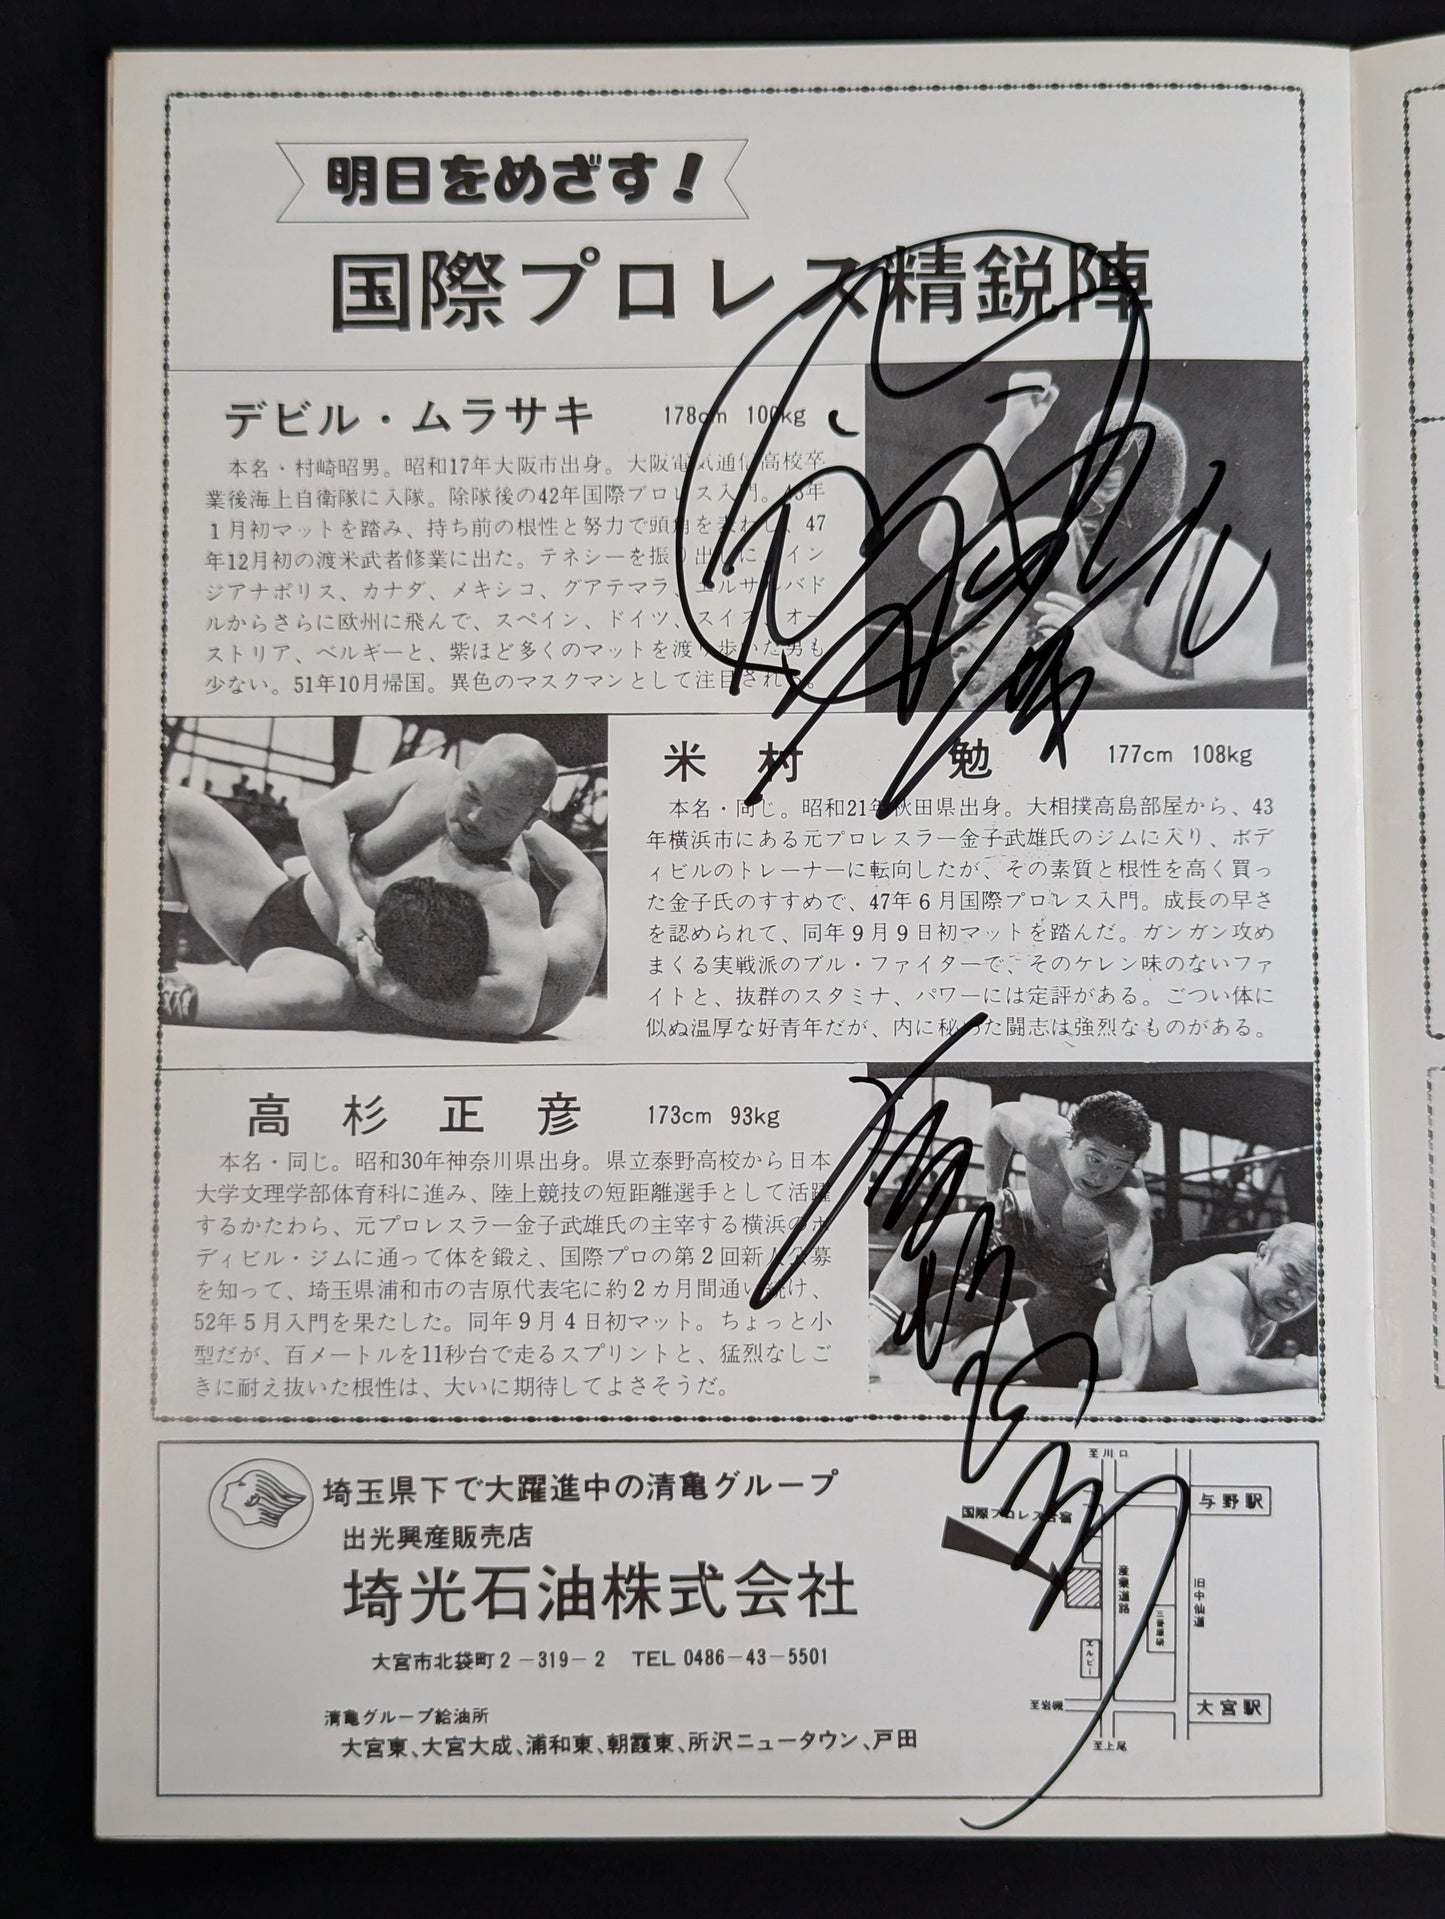 明日をめざす!
国際プロレス精鋭陣
デビル・ムラサキ 178cm 100kg
本名・村崎昭男。昭和17年大阪市出身。大阪電気通信高校卒
業後海上自衛隊に入隊。除隊後の42年国際プロレス入門。43年
1月初マットを踏み、持ち前の根性と努力で頭角を表わし、47
年12月初の渡米武者修業に出た。テネシーを振り出しに、イン
ジアナポリス、カナダ、メキシコ、グアテマラ、エルサルバド
ルからさらに欧州に飛んで、スペイン、ドイツ、スイス、オー
ストリア、ベルギーと、紫ほど多くのマットを渡り歩いた男も
少ない。51年10月帰国。異色のマスクマンとして注目される。
米村 勉 177cm 108kg
本名・同じ。昭和21年秋田県出身。大相撲高島部屋から、43
年横浜市にある元プロレスラー金子武雄氏のジムに入り、ボデ
ィビルのトレーナーに転向したが、その素質と根性を高く買っ
た金子氏のすすめで、47年6月国際プロレス入門。成長の早さ
を認められて、同年9月9日初マットを踏んだ。ガンガン攻め
まくる実戦派のブル・ファイターで、そのケレン味のないファ
イトと、抜群のスタミナ、パワーには定評がある。ごつい体に
似ぬ温厚な好青年だが、内に秘った闘志は強烈なものがある。
高杉正彦 173cm 93kg
本名・同じ。昭和30年神奈川県出身。県立泰野高校から日本
大学文理学部体育科に進み、陸上競技の短距離選手として活躍
するかたわら、元プロレスラー金子武雄氏の主宰する横浜のボ
ディビル・ジムに通って体を鍛え、国際プロの第2回新人公募
を知って、埼玉県浦和市の吉原代表宅に約2カ月間通い続け、
52年5月入門を果たした。同年9月4日初マット。ちょっと小
型だが、百メートルを11秒台で走るスプリントと、猛烈なしご
きに耐え抜いた根性は、大いに期待してよさそうだ。
埼玉県下で大躍進中の清亀グループ
出光興産販売店
埼光石油株式会社
大宮市北袋町2-319-2 TEL 0486-43-5501
清亀グループ給油所
大宮東、大宮大成、浦和東、朝霞東、所沢ニュータウン、戸田
至川口
与野駅
国際プロレス合宿
産業道路
旧中仙道
エルビー
至岩槻
大宮駅
至上尾